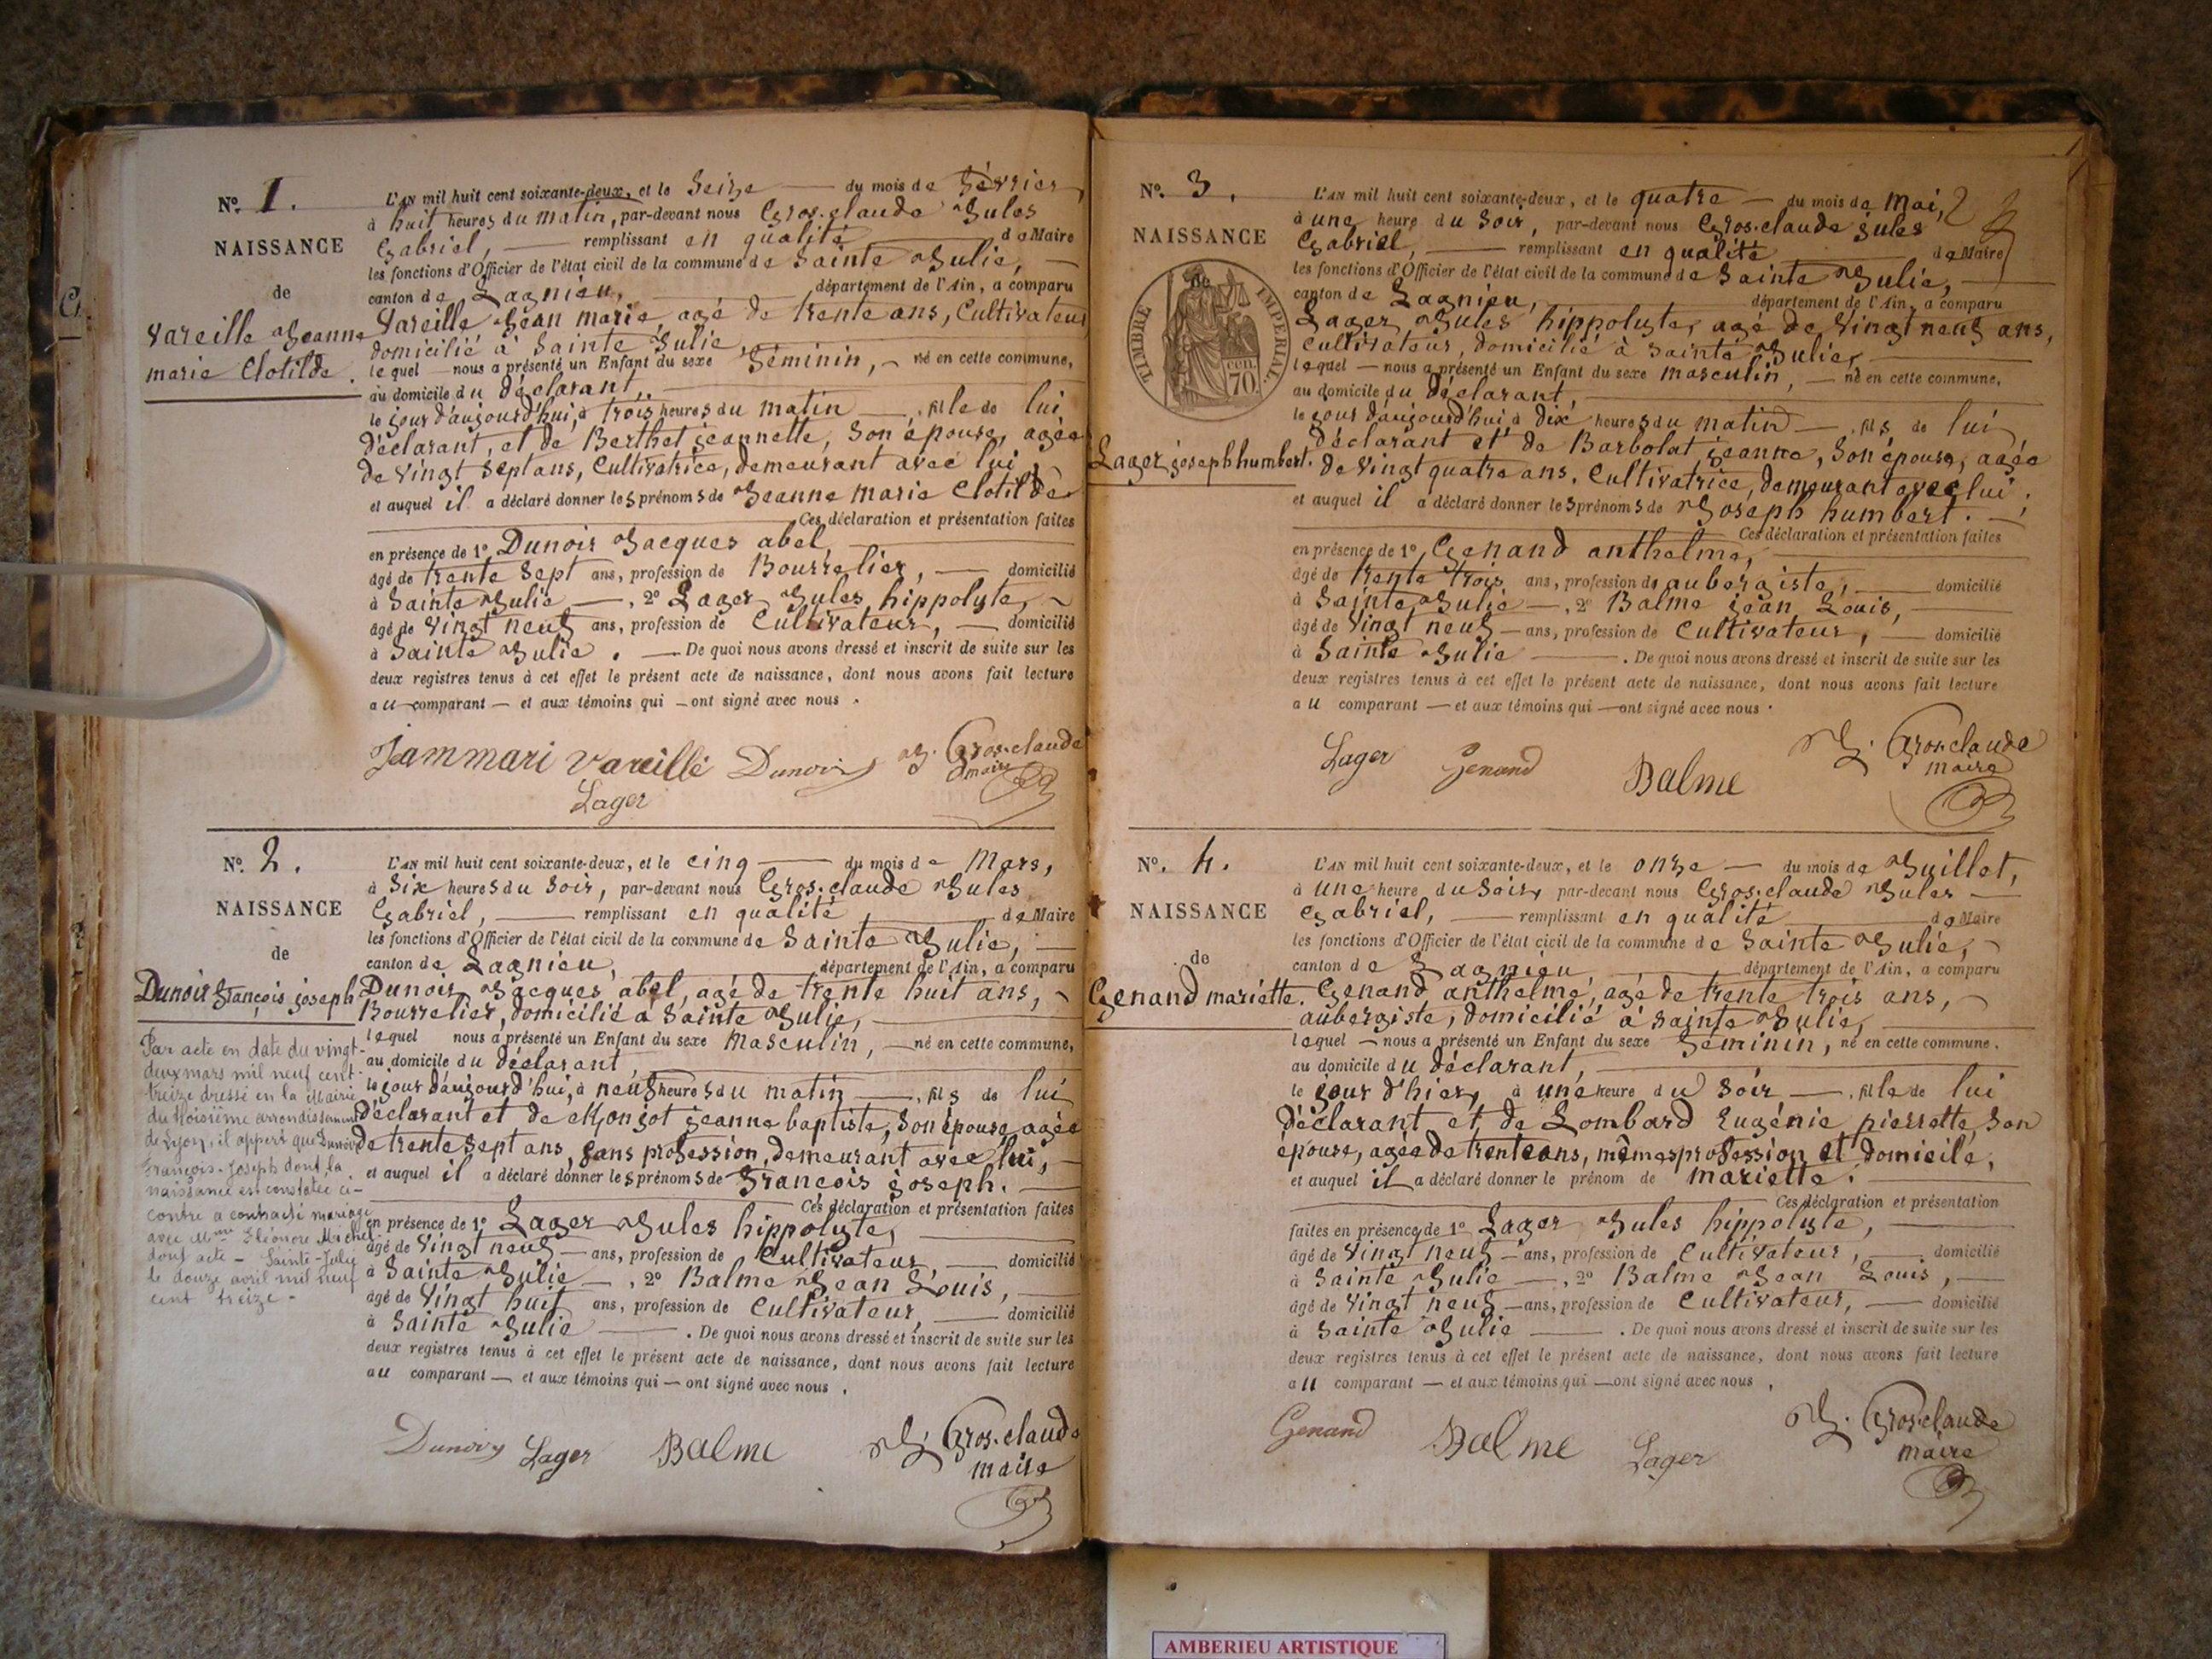 N.º 1.
NAISSANCE
de
Vareille Jeanne
marie Clotilde.
L'AN mil huit cent soixante-deux, et le Seize du mois de Février,
à huit heures du matin, par-devant nous Gros-claude Jules
Gabriel, remplissant en qualité de Maire
les fonctions d'Officier de l'état civil de la commune de Sainte Julie,
canton de Lagnieu, département de l'Ain, a comparu
Vareille Jean marie, agé de trente ans, Cultivateur
domicilié à Sainte Julie,
lequel nous a présenté un Enfant du sexe Féminin, né en cette commune,
au domicile du déclarant,
le jour d'aujourd'hui, à trois heures du matin, fille de lui
déclarant, et de Berthet jeannette, Son épouse, agée
de Vingt Sept ans, Cultivatrice, demeurant avec lui,
et auquel il a déclaré donner les prénoms de Jeanne marie Clotilde
Ces déclaration et présentation faites
en présence de 1º Dunoir Jacques abel,
âgé de trente Sept ans, profession de Bourrelier, domicilié
à Sainte Julie, 2º Lager Jules hippolyte,
âgé de Vingt neuf ans, profession de Cultivateur, domicilié
à Sainte Julie. De quoi nous avons dressé et inscrit de suite sur les
deux registres tenus à cet effet le présent acte de naissance, dont nous avons fait lecture
au comparant et aux témoins qui ont signé avec nous.
Jammari Vareille Dunoir J. Gros-claude
maire
Lager
N.º 2.
NAISSANCE
de
Dunoir François joseph
Par acte en date du vingt-
deux mars mil neuf cent
treize dressé en la Mairie
du troisième arrondissement
de Lyon, il appert que Dunoir
François-Joseph dont la
naissance est constatée ci-
contre a contracté mariage
avec Mme Eléonore Michel
dont acte - Sainte-Julie
le douze avril mil neuf
cent treize -
L'AN mil huit cent soixante-deux, et le cinq du mois de Mars,
à Six heures du Soir, par-devant nous Gros-claude Jules
Gabriel, remplissant en qualité de Maire
les fonctions d'Officier de l'état civil de la commune de Sainte Julie,
canton de Lagnieu, département de l'Ain, a comparu
Dunoir Jacques abel, agé de trente huit ans,
Bourrelier, domicilié à Sainte Julie,
lequel nous a présenté un Enfant du sexe Masculin, né en cette commune,
au domicile du déclarant
le jour d'aujourd'hui, à neuf heures du matin, fils de lui
déclarant et de Monjot jeanne baptiste, Son épouse, agée
de trente Sept ans, Sans profession, demeurant avec lui,
et auquel il a déclaré donner les prénoms de François joseph.
Ces déclaration et présentation faites
en présence de 1º Lager Jules hippolyte,
âgé de Vingt neuf ans, profession de Cultivateur, domicilié
à Sainte Julie, 2º Balme Jean Louis,
âgé de Vingt huit ans, profession de Cultivateur, domicilié
à Sainte Julie. De quoi nous avons dressé et inscrit de suite sur les
deux registres tenus à cet effet le présent acte de naissance, dont nous avons fait lecture
au comparant et aux témoins qui ont signé avec nous.
Dunoir Lager Balme J. Gros-claude
maire
N.º 3.
NAISSANCE
de
TIMBRE IMPERIAL.
cen.
70.
Lager joseph humbert.
L'AN mil huit cent soixante-deux, et le quatre du mois de Mai, 2
à une heure du Soir, par-devant nous Gros-claude jules
Gabriel, remplissant en qualité de Maire
les fonctions d'Officier de l'état civil de la commune de Sainte Julie,
canton de Lagnieu, département de l'Ain, a comparu
Lager Jules hippolyte, agé de Vingt neuf ans,
Cultivateur, domicilié à Sainte Julie,
lequel nous a présenté un Enfant du sexe masculin, né en cette commune,
au domicile du déclarant,
le jour d'aujourd'hui à Dix heures du matin, fils de lui
déclarant et de Barbolat jeanne, Son épouse, agée
de Vingt quatre ans, Cultivatrice, demeurant avec lui,
et auquel il a déclaré donner les prénoms de Joseph humbert.
Ces déclaration et présentation faites
en présence de 1º Genand anthelme,
âgé de trente trois ans, profession de aubergiste, domicilié
à Sainte Julie, 2º Balme jean Louis,
âgé de Vingt neuf ans, profession de Cultivateur, domicilié
à Sainte Julie. De quoi nous avons dressé et inscrit de suite sur les
deux registres tenus à cet effet le présent acte de naissance, dont nous avons fait lecture
au comparant et aux témoins qui ont signé avec nous.
Lager Genand Balme J. Gros-claude
maire
N.º 4.
NAISSANCE
de
Genand mariette.
L'AN mil huit cent soixante-deux, et le onze du mois de Juillet,
à une heure du Soir, par-devant nous Gros-claude Jules
Gabriel, remplissant en qualité de Maire
les fonctions d'Officier de l'état civil de la commune de Sainte Julie,
canton de Lagnieu, département de l'Ain, a comparu
Genand anthelme, agé de trente trois ans,
aubergiste, domicilié à Sainte Julie,
lequel nous a présenté un Enfant du sexe Féminin, né en cette commune,
au domicile du déclarant,
le jour d'hier, à une heure du Soir, fille de lui
déclarant et de Lombard Eugénie pierrette, Son
épouse, agée de trente ans, mêmes profession et domicile,
et auquel il a déclaré donner le prénom de mariette.
Ces déclaration et présentation
faites en présence de 1º Lager Jules hippolyte,
âgé de Vingt neuf ans, profession de Cultivateur, domicilié
à Sainte Julie, 2º Balme Jean Louis,
âgé de Vingt neuf ans, profession de Cultivateur, domicilié
à Sainte Julie. De quoi nous avons dressé et inscrit de suite sur les
deux registres tenus à cet effet le présent acte de naissance, dont nous avons fait lecture
au comparant et aux témoins qui ont signé avec nous.
Genand Balme Lager J. Gros-claude
maire
AMBERIEU ARTISTIQUE